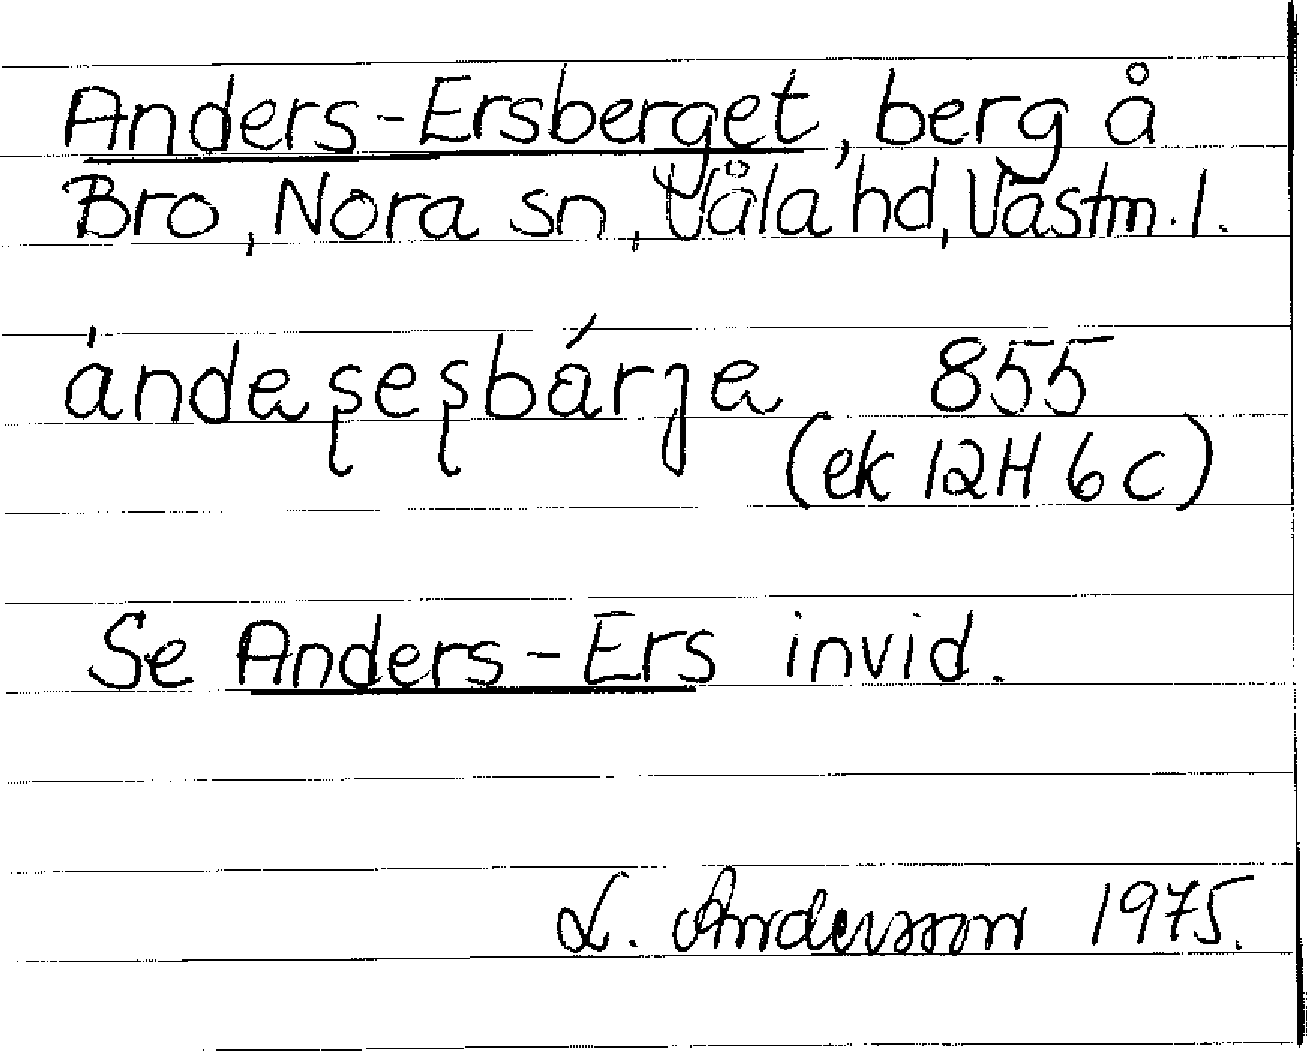 Anders-Ersberget, berg å
Bro, Nora sn, Våla hd, Västm. l.
ándaşeşbárȷa 855
(ek 12H 6c)
Se Anders-Ers invid.
L. Andersson 1975.